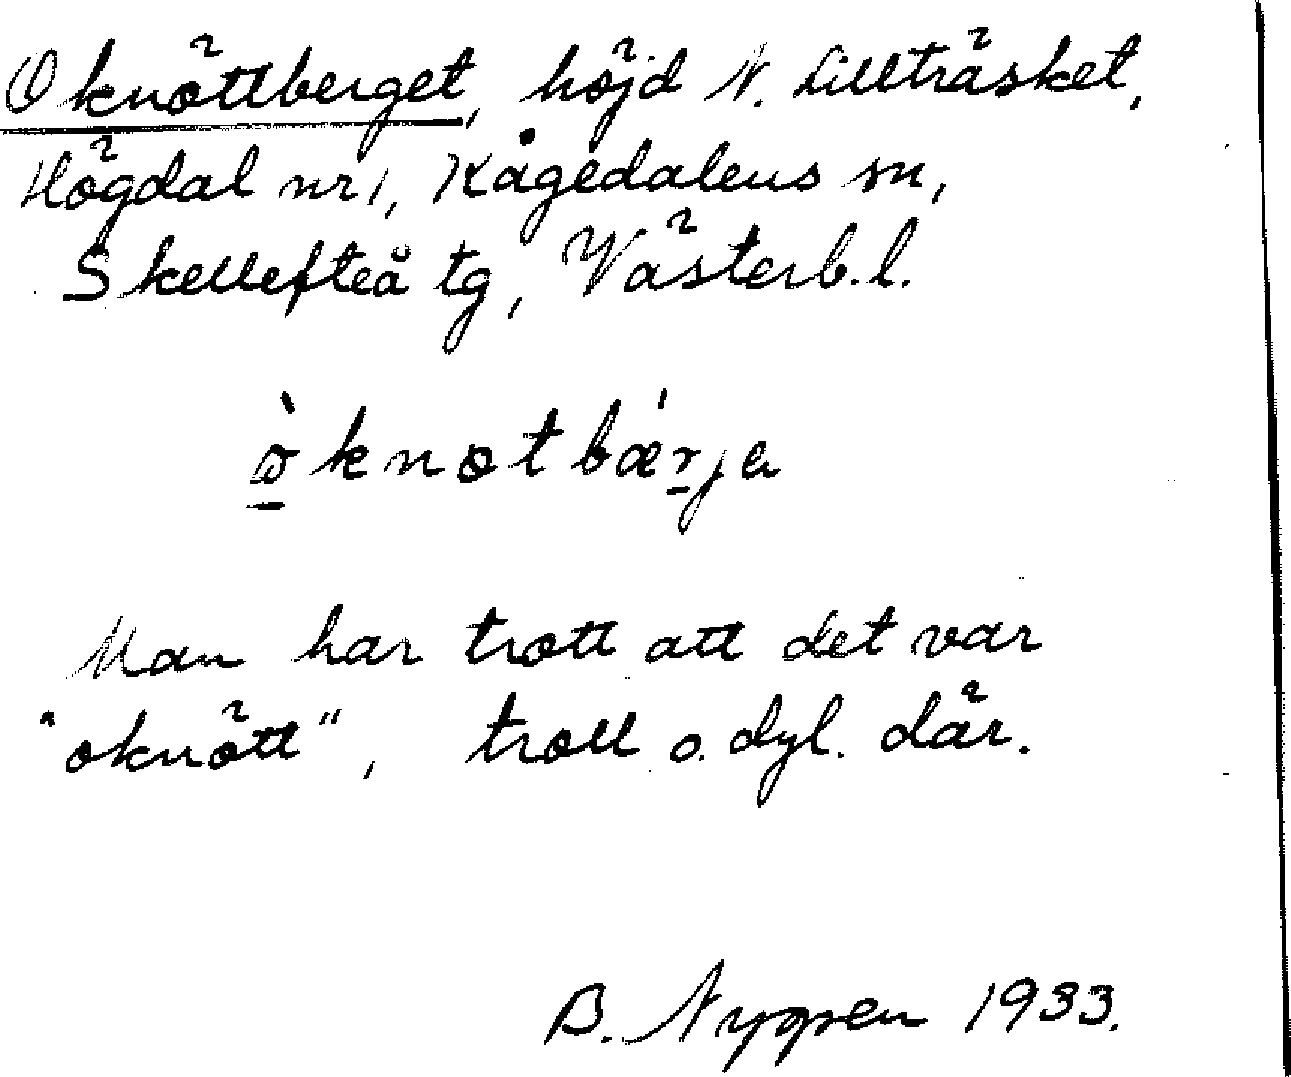 Oknöttberget, höjd N. Lillträsket,
Högdal nr 1, Kågedalens sn,
Skellefteå tg, Västerb. l.
ò̱knøtbæ'ṟja
Man har trott att det var
"oknött", troll o. dyl. där.
B. Nygren 1933.